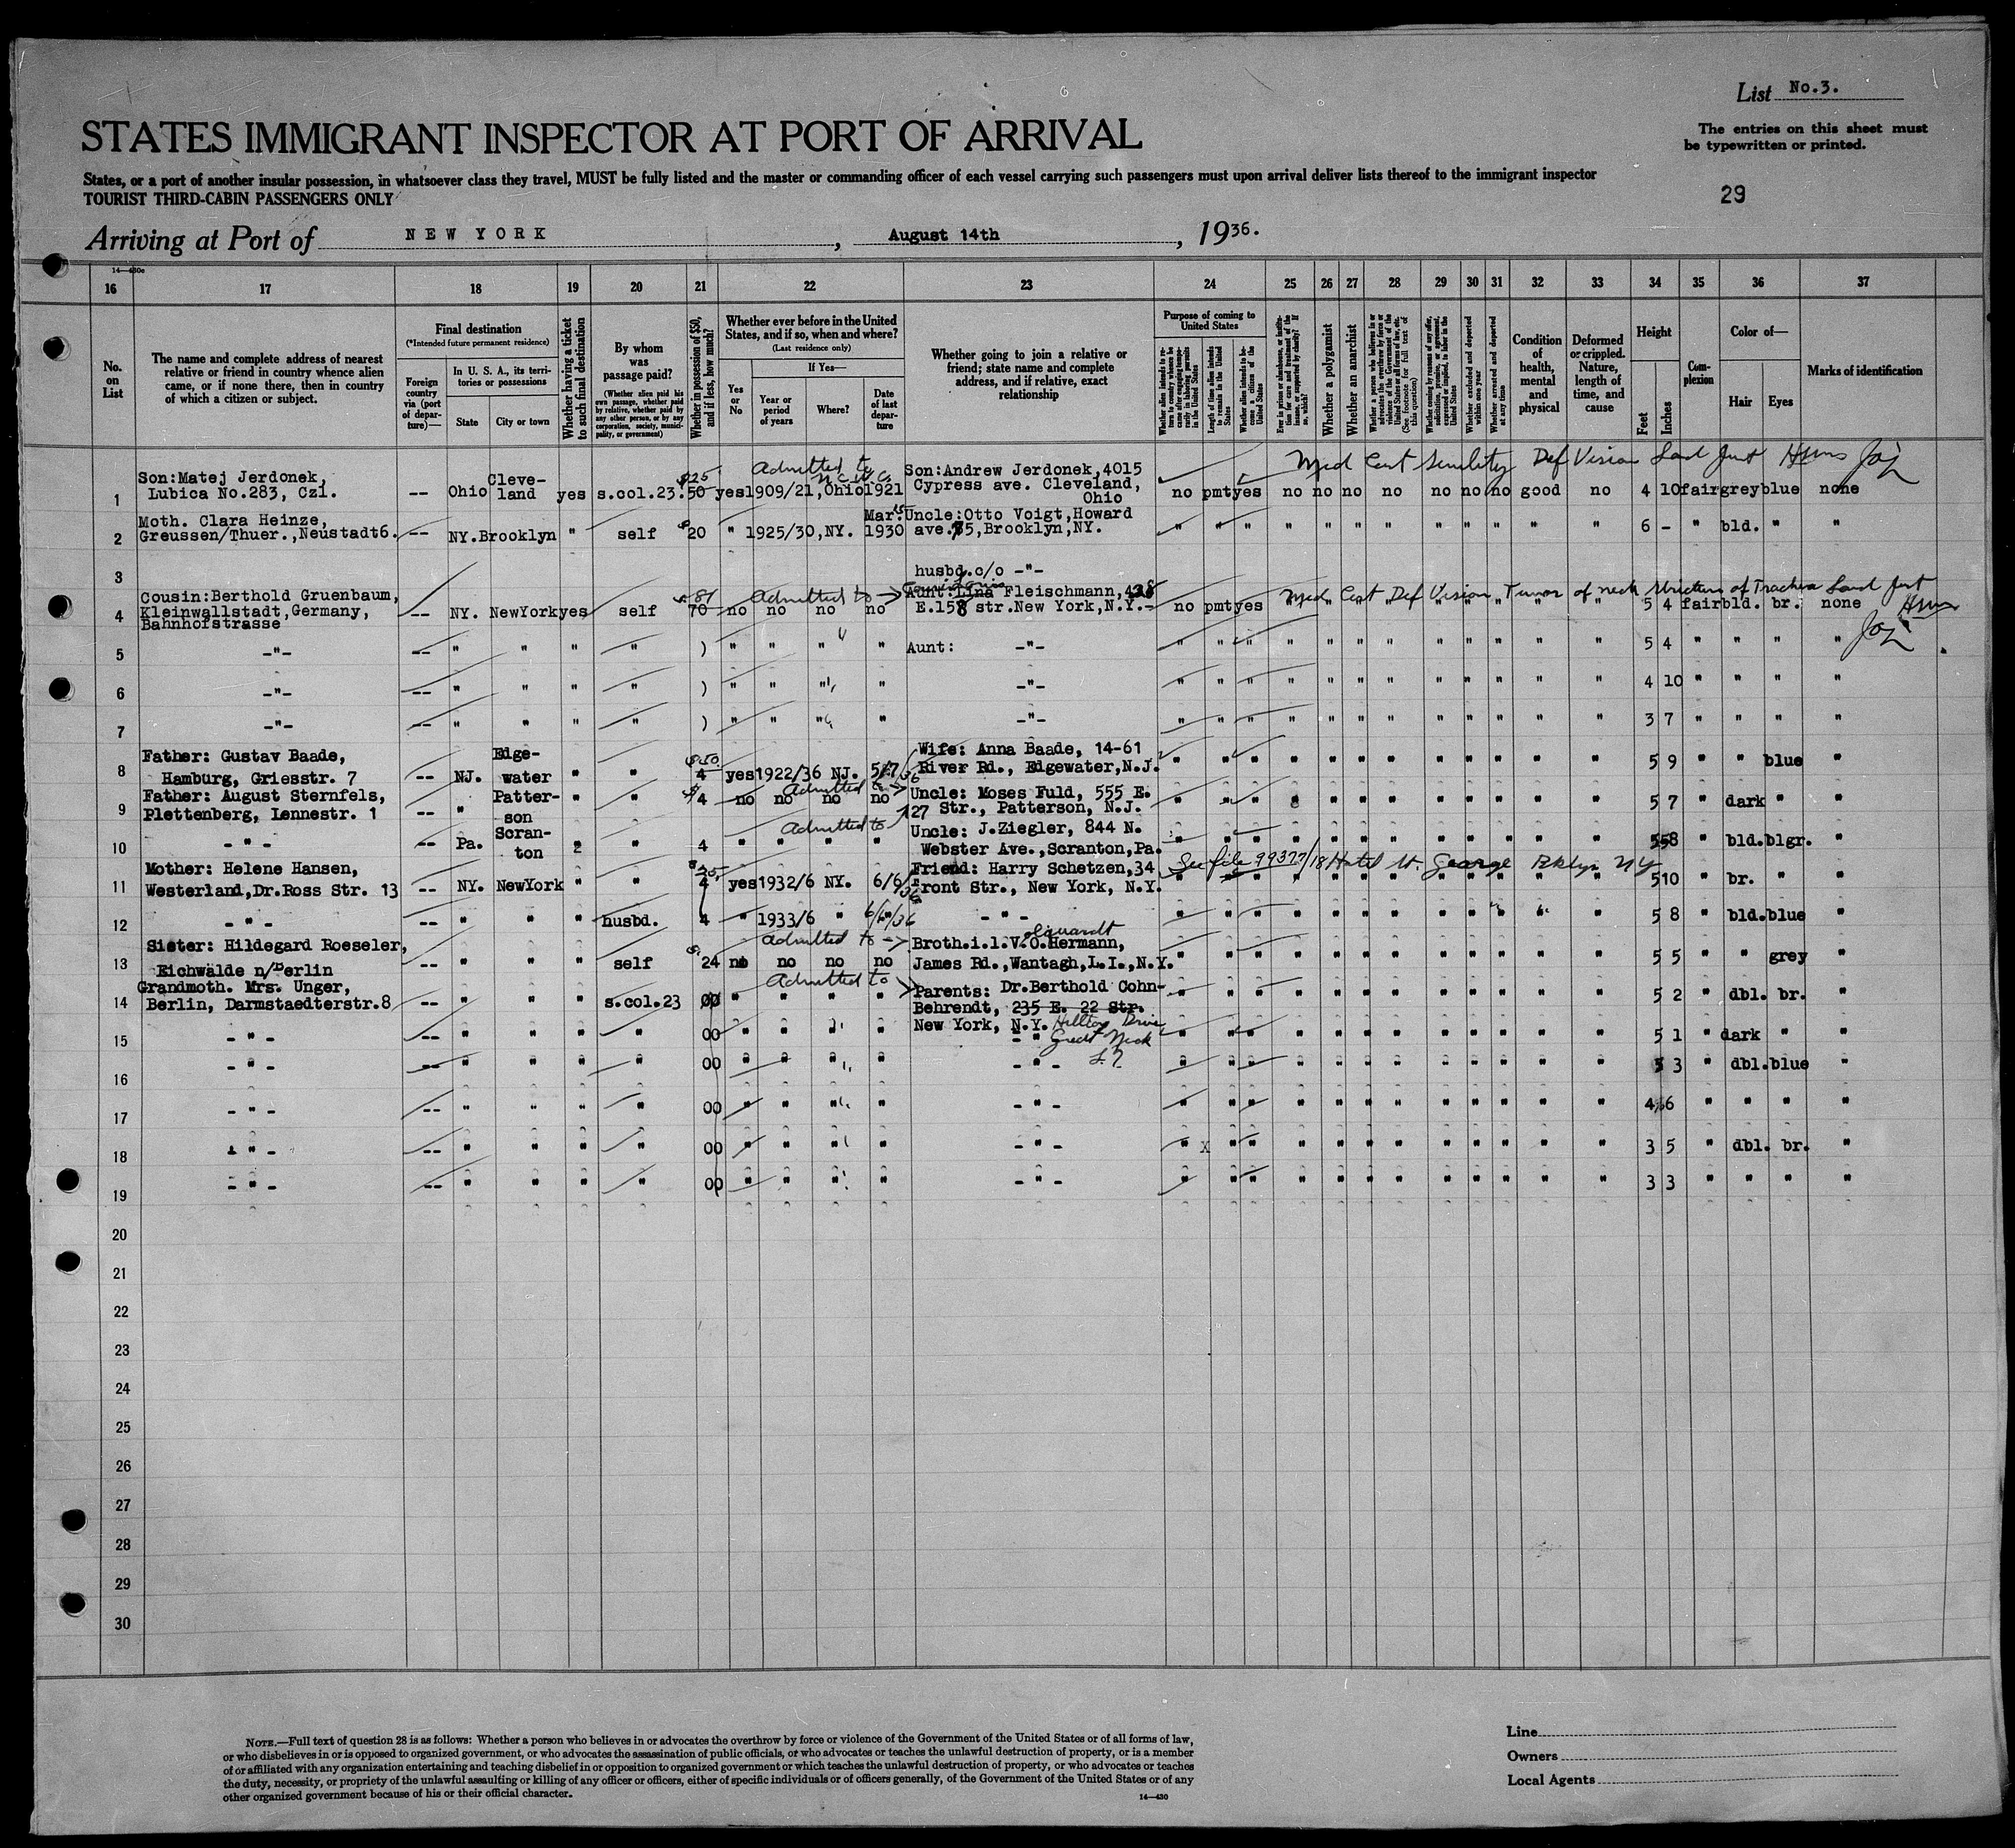 List No.3.
STATES IMMIGRANT INSPECTOR AT PORT OF ARRIVAL
The entries on this sheet must
be typewritten or printed.
States, or a port of another insular possession, in whatsoever class they travel, MUST be fully listed and the master or commanding officer of each vessel carrying such passengers must upon arrival deliver lists thereof to the immigrant inspector
TOURIST THIRD-CABIN PASSENGERS ONLY
29
Arriving at Port of NEW YORK, August 14th, 1936.
16 17 18 19 20 21 22 23 24 25 26 27 28 29 30 31 32 33 34 35 36 37
No. on List
The name and complete address of nearest relative or friend in country whence alien came, or if none there, then in country of which a citizen or subject.
Final destination
(*Intended future permanent residence)
Foreign country via (port of departure)—
In U. S. A., its territories or possessions
State
City or town
Whether having a ticket to such final destination
By whom was passage paid?
(Whether alien paid his own passage, whether paid by relative, whether paid by any other person, or by any corporation, society, municipality, or government)
Whether in possession of $50, and if less, how much?
Whether ever before in the United States, and if so, when and where?
(Last residence only)
Yes or No
If Yes—
Year or period of years
Where?
Date of last departure
Whether going to join a relative or friend; state name and complete address, and if relative, exact relationship
Purpose of coming to United States
Length of time alien intends to remain in the United States
Whether alien intends to become a citizen of the United States
Whether a polygamist
Whether an anarchist
Whether excluded and deported within one year
Whether arrested and deported at any time
Condition of health, mental and physical
Deformed or crippled. Nature, length of time, and cause
Height
Feet
Inches
Complexion
Color of—
Hair
Eyes
Marks of identification
Admitted to
Med Cert Senility Def Vision
1 Son:Matej Jerdonek, Lubica No.283, Czl. -- Ohio Cleve-land yes s.col.23. $25 50 yes 1909/21,Ohio 1921 Son:Andrew Jerdonek,4015 Cypress ave. Cleveland, Ohio no pmt yes no no no no no no no good no 4 10 fair grey blue none
2 Moth. Clara Heinze, Greussen/Thuer.,Neustadt6. -- NY. Brooklyn " self 20 " 1925/30,NY. Mar. 1930 Uncle:Otto Voigt,Howard ave. 75,Brooklyn,NY. " " " " " " " " " " " " 6 - " bld. " "
3 husbd.c/o -"-
Admitted to
Med Cert Def Vision Tumor of neck Stricture of Trachea
4 Cousin:Berthold Gruenbaum, Kleinwallstadt,Germany, Bahnhofstrasse -- NY. NewYork yes self 70 no no no no Fleischmann, E.158 str.New York,N.Y. no pmt yes 5 4 fair bld. br. none
5 -"- -- " " " " ) " " " " Aunt: -"- 5 4 " " " "
6 -"- -- " " " " ) " " " " -"- 4 10 " " " "
7 -"- -- " " " " ) " " " " -"- 3 7 " " " "
8 Father: Gustav Baade, Hamburg, Griesstr. 7 -- NJ. Edge-water " " 4 yes 1922/36 NJ. Wife: Anna Baade, 14-61 River Rd., Edgewater,N.J. 5 9 " " blue "
Admitted to
9 Father: August Sternfels, Plettenberg, Lennestr. 1 -- " Patter-son " " 4 no no no no Uncle: Moses Fuld, 555 E. 27 Str., Patterson, N.J. 5 7 " dark " "
Admitted to
10 -"- -- Pa. Scran-ton " " 4 " " " " Uncle: J.Ziegler, 844 N. Webster Ave.,Scranton,Pa. bld. blgr. "
See file 99377/18 Hotel St. George Bklyn NY
11 Mother: Helene Hansen, Westerland,Dr.Ross Str. 13 -- NY. NewYork " " 4 yes 1932/6 NY. Friend: Harry Schetzen,34 Front Str., New York, N.Y. 5 10 " br. " "
12 -"- -- " " " husbd. 4 " 1933/6 " -"- 5 8 " bld. blue "
Admitted to
13 Sister: Hildegard Roeseler, Eichwalde n/Berlin -- " " " self 24 no no no no Broth.i.l.V.O.Hermann, James Rd.,Wantagh,L.I.,N.Y. 5 5 " " grey "
Admitted to
14 Grandmoth. Mrs. Unger, Berlin, Darmstaedterstr.8 -- " " " s.col.23 00 " " " " Parents: Dr.Berthold Cohn-Behrendt, 235 E. 22 Str. New York, N.Y. Hilltop Drive Great Neck 5 2 " dbl. br. "
15 -"- -- " " " " 00 " " " " -"- 5 1 " dark " "
16 -"- -- " " " " 00 " " " " -"- 3 " dbl. blue "
17 -"- -- " " " " 00 " " " " -"- 4 6 " " " "
18 -"- -- " " " " 00 " " " " -"- 3 5 " dbl. br. "
19 -"- -- " " " " 00 " " " " -"- 3 3 " " " "
20
21
22
23
24
25
26
27
28
29
30
NOTE.—Full text of question 28 is as follows: Whether a person who believes in or advocates the overthrow by force or violence of the Government of the United States or of all forms of law,
or who disbelieves in or is opposed to organized government, or who advocates the assassination of public officials, or who advocates or teaches the unlawful destruction of property, or is a member
of or affiliated with any organization entertaining and teaching disbelief in or opposition to organized government or which teaches the unlawful destruction of property, or who advocates or teaches
the duty, necessity, or propriety of the unlawful assaulting or killing of any officer or officers, either of specific individuals or of officers generally, of the Government of the United States or of any
other organized government because of his or their official character.
14—430
Line
Owners
Local Agents